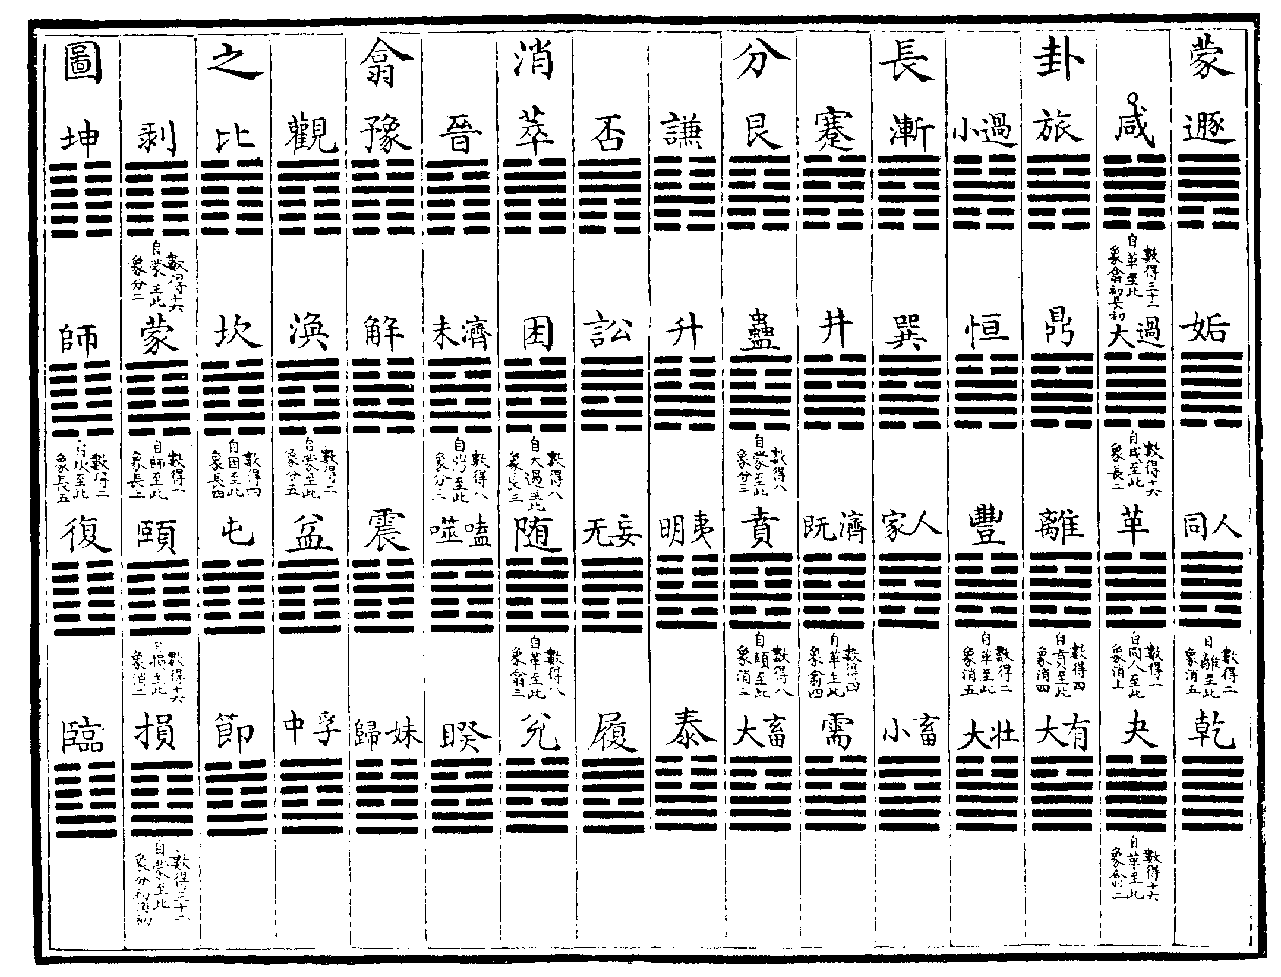 蒙卦長分消翕之圖
遯
咸
數得三十二
自革至此
象翕初長初
旅
小過
漸
蹇
艮
謙
否
萃
晉
豫
觀
比
剥
數得十六
自蒙至此
象分二
坤
姤
大過
數得十六
自咸至此
象長二
鼎
恒
巽
井
蠱
數得八
自蒙至此
象分三
升
訟
困
數得八
自大過至此
象長三
未濟
數得八
至此
解
渙
數得二
自蒙至此
象分五
坎
數得四
自困至此
象長四
蒙
數得一
自師至此
象長上
師
數得二
自坎至此
象長五
同人
數得二
自離至此
象消五
革
數得一
自同人至此
象消上
離
數得四
自賁至此
象消四
豐
數得二
自革至此
家人
既濟
數得四
自革至此
象翕四
賁
數得八
自頤至此
象消三
明夷
无妄
随
數得八
自革至此
象翕三
噬嗑
震
益
屯
頤
數得十六
自損至此
象消二
復
乾
夬
數得十六
自革至此
象翕二
大有
大壯
小畜
需
大畜
泰
履
兌
睽
歸妹
中孚
節
損
數得三十二
自蒙至此
象分初消初
臨